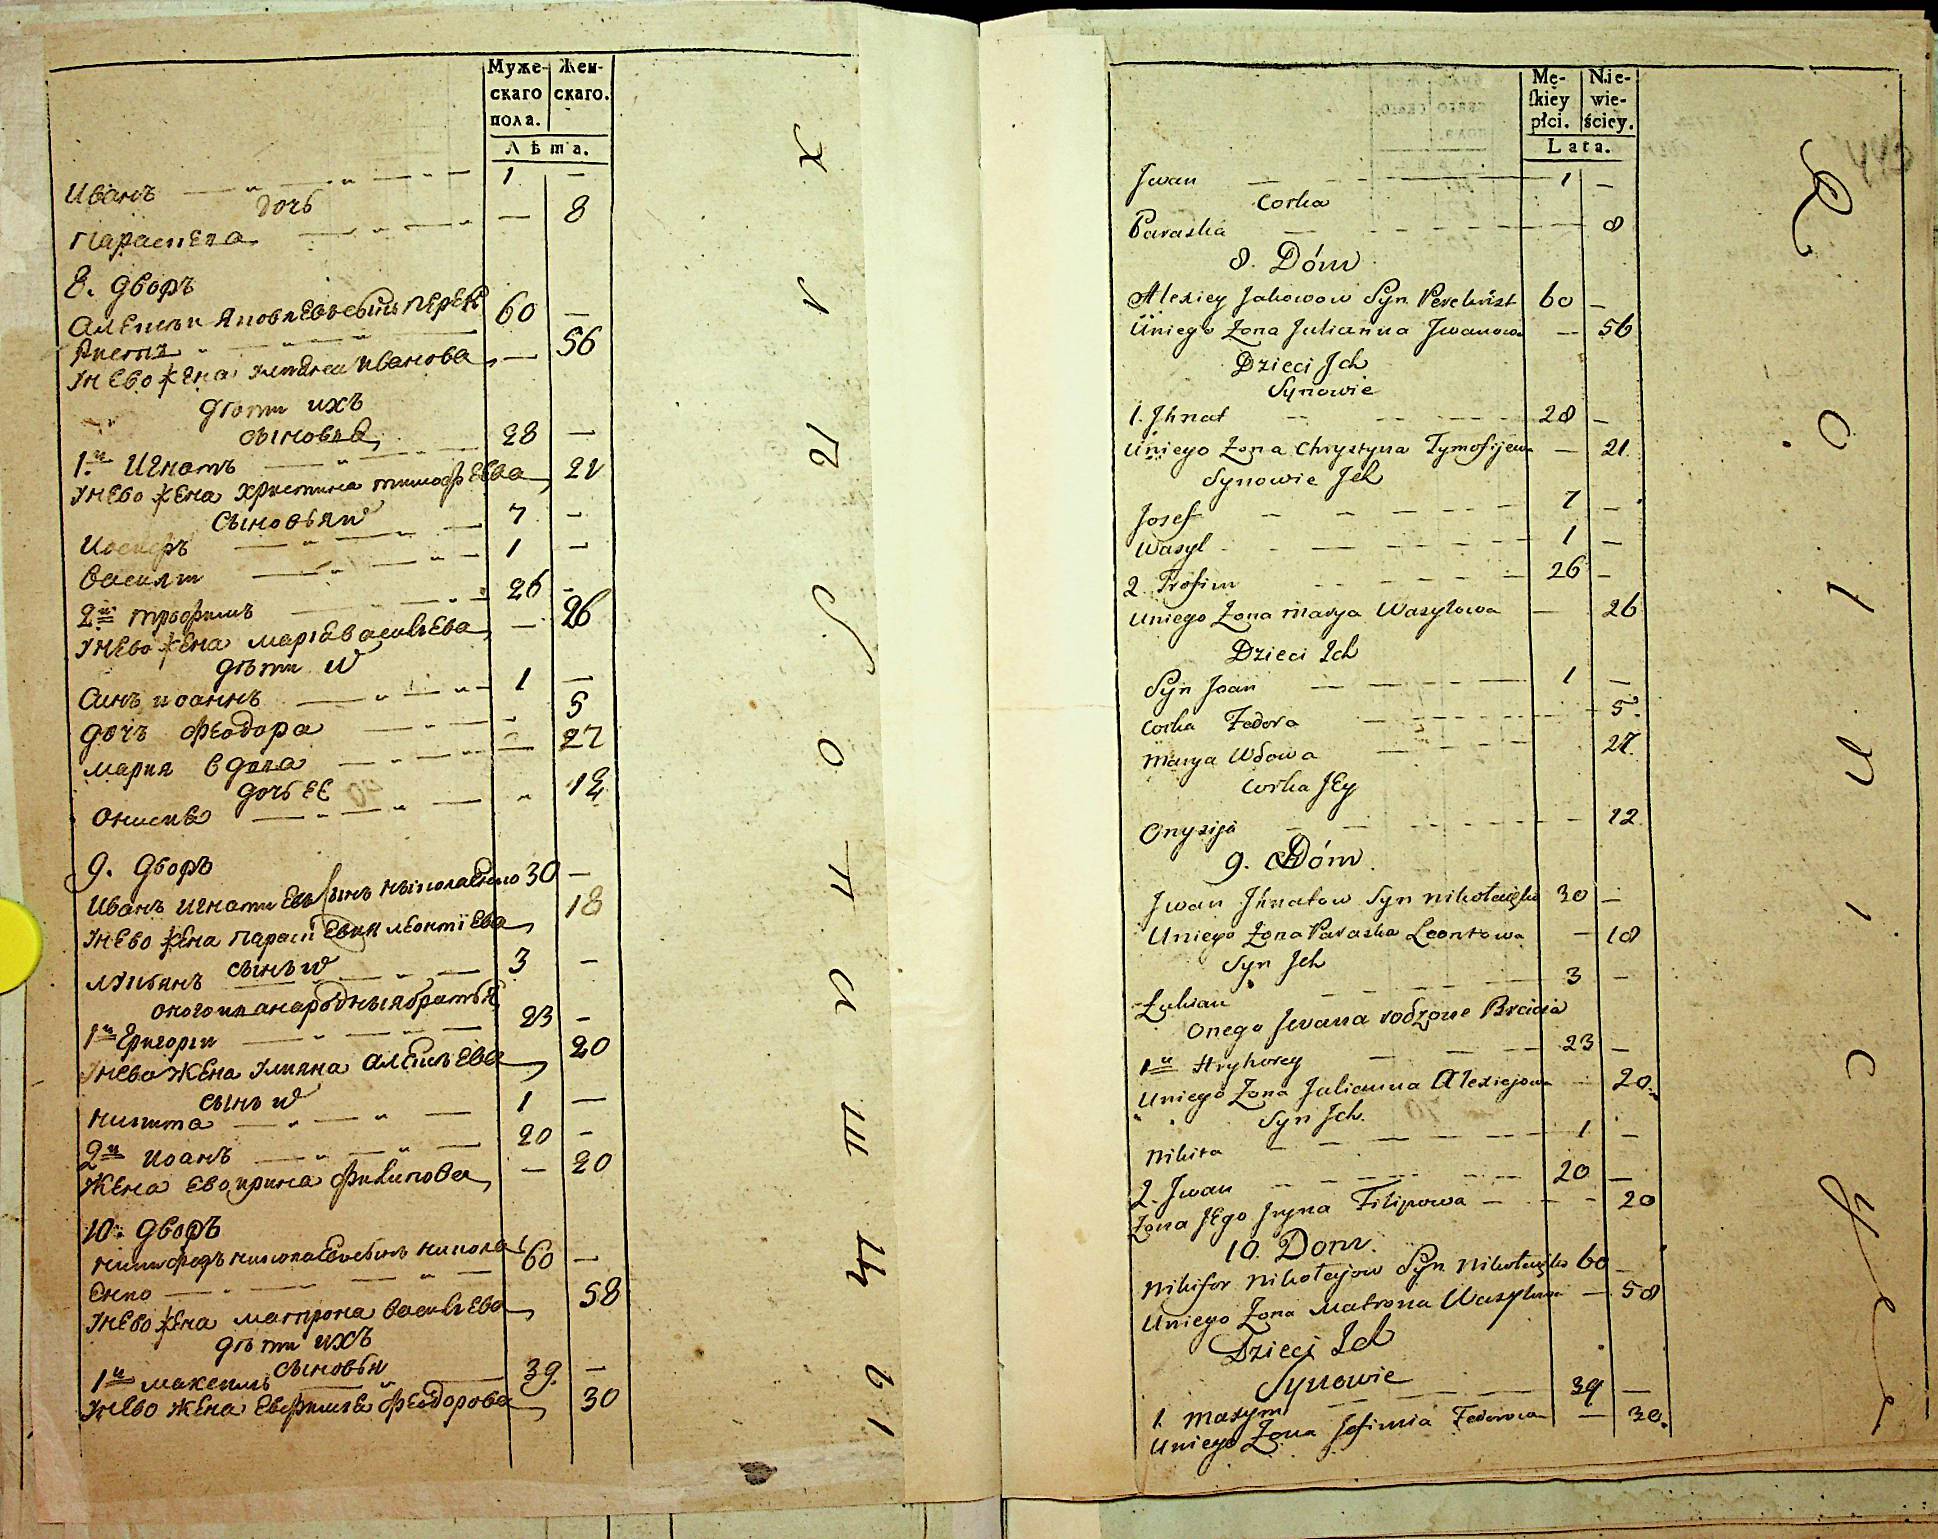 Муже-
скаго
пола.
Жен-
скаго.
Лѣта.
Иванъ 1 —
дочь
Параскева — 8
8. дворъ
Алексѣи Яковлевъ сынъ Перек 60 —
рисстъ
унево жена Улиана Иванова — 56
дѣти ихъ
сыновья
1й Игнатъ 28 —
унево жена Христина тимофеева 21
сыновья и
Иосифъ 7 —
Василии 1 —
2й трофимъ 26 —
унево жена марiя васильева — 26
дѣти и
синъ иоаннъ 1 —
дочъ феодора 5
мария вдова — 27
дочь ее
Онисия 12
9. дворъ
Иванъ игнатиевъ сынъ николаенко 30 —
унево жена параскевия леонтiева 18
сынъ и
лукьянъ 3 —
оного ивана родныя братья
1й Григорiи 23 —
унево жена улияна алексѣева 20
сынъ и
никита 1 —
2й иоанъ 20 —
жена ево ирина филипова — 20
10. дворъ
никифоръ николаевъ сынъ никола 60 —
енко
унево жена матрона васильева 58
дѣти ихъ
сыновья
1й максимъ 39 —
унево жена евфимiя феодорова 30
Mę-
skiey
płci.
Nie-
wie-
ściey.
Lata.
Jwan 1 —
Corka
Paraska 8
8. Dóm
Alexiey Jakowow Syn Perekrist 60 —
Uniego Zona Julianna Jwanowa — 56
Dzieci Jch
Synowie
1. Jhnat 28 —
Uniego Zona Chrystyna Tymofijewa — 21
Synowie Jch
Josef 7 —
Wasyl 1 —
2 Trofim 26 —
Uniego Zona Marya Wasylowa — 26
Dzieci Jch
Syn Joan 1 —
Corka Fedora 5
Marya Wdowa 27
Corka Jey
Onyzija 12
9. Dóm
Jwan Jhnatow Syn Nikołaieńko 30 —
Uniego Zona Paraska Leontowa — 18
Syn Jch
Łukian 3 —
Onego Jwana rodzone Bracia
1й Hryhorey 23 —
Uniego Zona Julianna Alexiejowa — 20
Syn Jch.
Nikita 1 —
2. Jwan 20 —
Zona Jego Jryna Filipowa — 20
10. Dom.
Nikifor Nikołajow Syn Nikołaieńko 60 —
Uniego Zona Matrona Wasylowa — 58
Dzieci Jch
Synowie
1. Maxym 39 —
Uniego Zona Jefimia Fedorowa — 30.